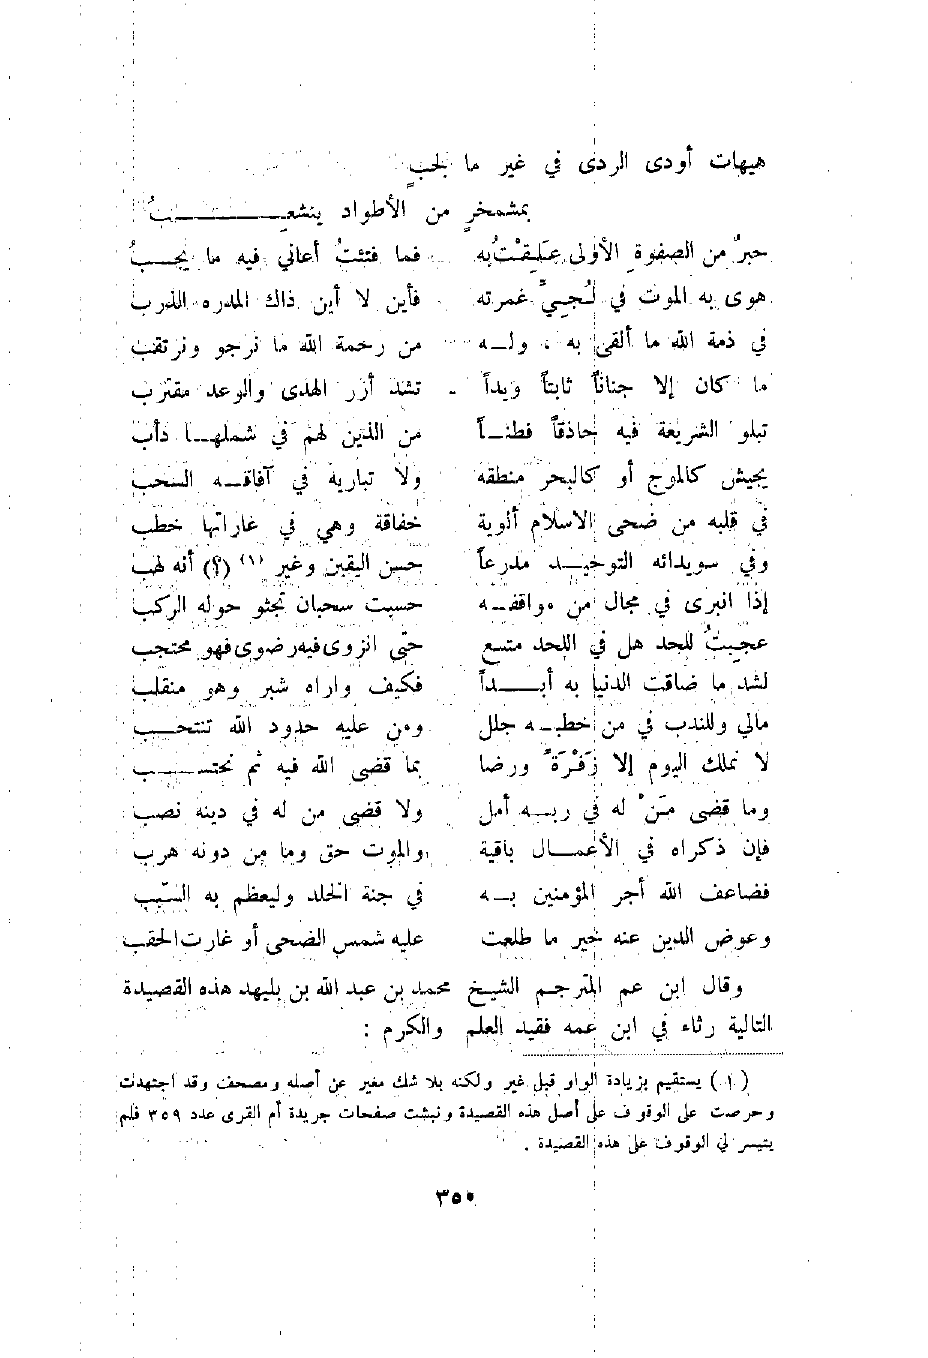 هيهات أودى الردى في غير ما لجبٍ
بمشمخرٍ من الأطواد ينشعبُ
حبرٌ من الصفوةِ الأولى عَلِقْتُ به فما فتئتُ أعاني فيه ما يجبُ
هوى به الموت في لُجيِّ غمرته فأين لا أين ذاك المدره الذرب
في ذمة الله ما ألقى به ، وله من رحمة الله ما نرجو ونرتقب
ما كان إلا جناناً ثابتاً ويداً تشد أزر الهدى والوعد مقترب
تبلو الشريعة فيه حاذقاً فطناً من الذين لهم في شملها دأب
يجيش كالموج أو كالبحر منطقه ولا تباريه في آفاقه السحب
في قلبه من ضحى الاسلام ألوية خفاقة وهي في غاراتها خطب
وفي سويدائه التوحيد مدرعاً حسن اليقين وغير (١) (؟) أنه لهب
إذا انبرى في مجال من مواقفه حسبت سحبان تجثو حوله الركب
عجبتُ للحد هل في اللحد متسع حتى انزوى فيه رضوى فهو محتجب
لشد ما ضاقت الدنيا به أبداً فكيف واراه شبر وهو منقلب
مالي وللندب في من خطبه جلل ومن عليه حدود الله تنتحب
لا نملك اليوم إلا زَفْرَةً ورضا بما قضى الله فيه ثم نحتسب
وما قضى مَنْ له في ربه أمل ولا قضى من له في دينه نصب
فإن ذكراه في الأعمال باقية والموت حق وما من دونه هرب
فضاعف الله أجر المؤمنين به في جنة الخلد وليعظم به السبب
وعوض الدين عنه خير ما طلعت عليه شمس الضحى أو غارت الحقب
وقال ابن عم المترجم الشيخ محمد بن عبد الله بن بليهد هذه القصيدة
التالية رثاء في ابن عمه فقيد العلم والكرم :
(١) يستقيم بزيادة الواو قبل غير ولكنه بلا شك مغير عن أصله ومصحف وقد اجتهدت
وحرصت على الوقوف على أصل هذه القصيدة ونبشت صفحات جريدة أم القرى عدد ٣٥٩ فلم
يتيسر لي الوقوف على هذه القصيدة .
٣٥٠